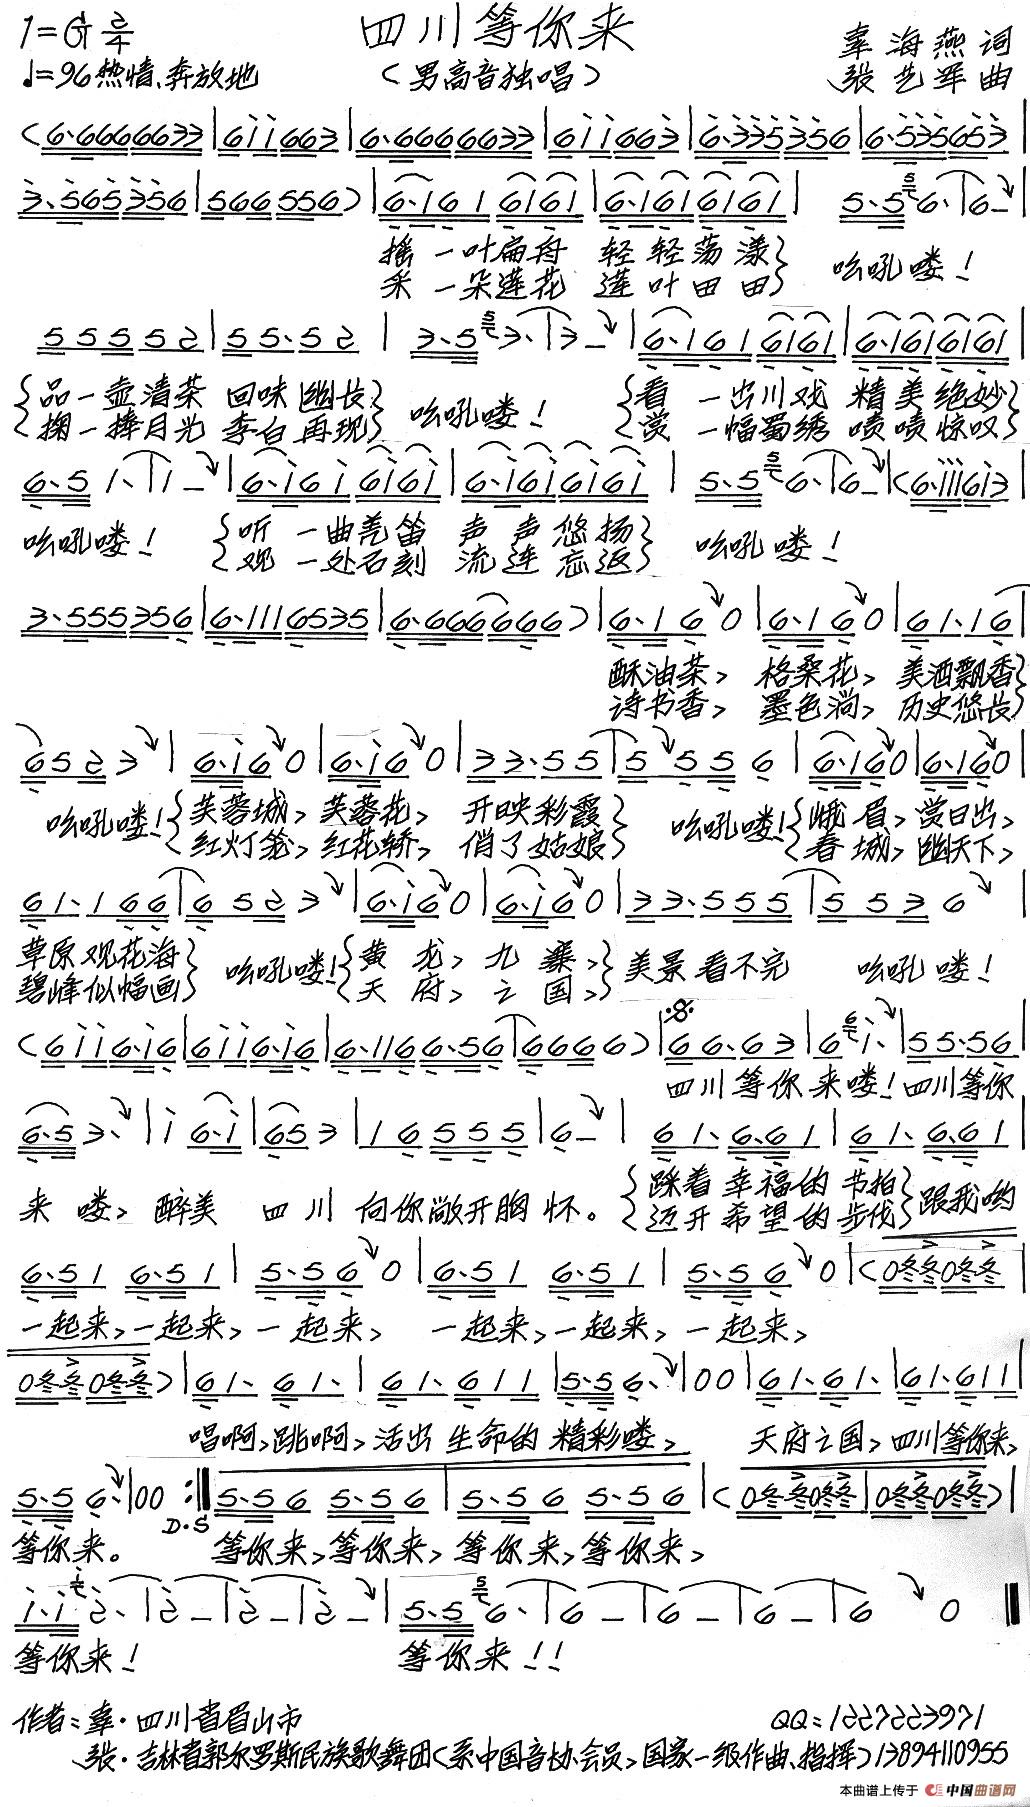 1=G 2/4
四川等你来
辜海燕 词
♩=96 热情、奔放地
（男高音独唱）
张艺军 曲
(6·6666633|6i i663|6·6666633|6i i663|6·3353 56|6·5356 53|
3·5653 56|566556)|6·161 6161|6·1616161| 5·5 6·|6–|
摇一叶扁舟 轻轻荡漾 吆吼喽！
采一朵莲花 莲叶田田
55552|55·52| 3·5 3·|3–|6·161 6161|6·1616161|
品一壶清茶 回味幽长 吆吼喽！ 看一出川戏 精美绝妙
掬一捧月光 李白再现 赏一幅蜀绣 啧啧惊叹
6·5 1·|1–|6·i6i 6i6i|6·i6i6i6i| 5·5 6·|6–|(6·iii6i3|
吆吼喽！ 听一曲羌笛 声声悠扬 吆吼喽！
观一处石刻 流连忘返
3·555356|6·1116535|6·666666)|6·160|6·160|61·16|
酥油茶，格桑花，美酒飘香
诗书香，墨色淌，历史悠长
6523|6·i60|6·i60|33·55|5556|6·160|6·160|
吆吼喽！ 芙蓉城，芙蓉花，开映彩霞 吆吼喽！ 峨眉，赏日出，
红灯笼，红花轿，俏了姑娘 春城，幽天下，
61·166|6523|6·i60|6·i60|33·555|5536|
草原观花海 吆吼喽！ 黄龙，九寨，美景看不完 吆吼喽！
碧峰似幅画 天府，之国，
(6ii6·i6|6ii6·i6|6·1166·56|6666)|66·63|6i·|55·56|
四川等你来喽！四川等你
6·53·|i6·i|653|16555|6–| 61·6·61|61·6·61|
来喽，醉美四川向你敞开胸怀。 踩着幸福的节拍 跟我哟
迈开希望的步伐
6·51 6·51|5·560|6·51 6·51|5·560|(0冬冬0冬冬|
一起来，一起来，一起来， 一起来，一起来，一起来，
0冬冬0冬冬)|61·61·|61·611|5·56·|00|61·61·|61·611|
唱啊，跳啊，活出生命的精彩喽， 天府之国，四川等你来，
5·56·|00:‖5·56 5·56|5·56 5·56|(0冬冬0冬冬|0冬冬0冬冬)|
D.S
等你来。 等你来，等你来，等你来，等你来，
i·i2·|2–|2–|2–|5·56·|6–|6–|6–|6 0‖
等你来！ 等你来！！
作者：辜·四川省眉山市 QQ：1227223971
张·吉林省郭尔罗斯民族歌舞团（系中国音协会员，国家一级作曲、指挥）13894110955
本曲谱上传于 中国曲谱网